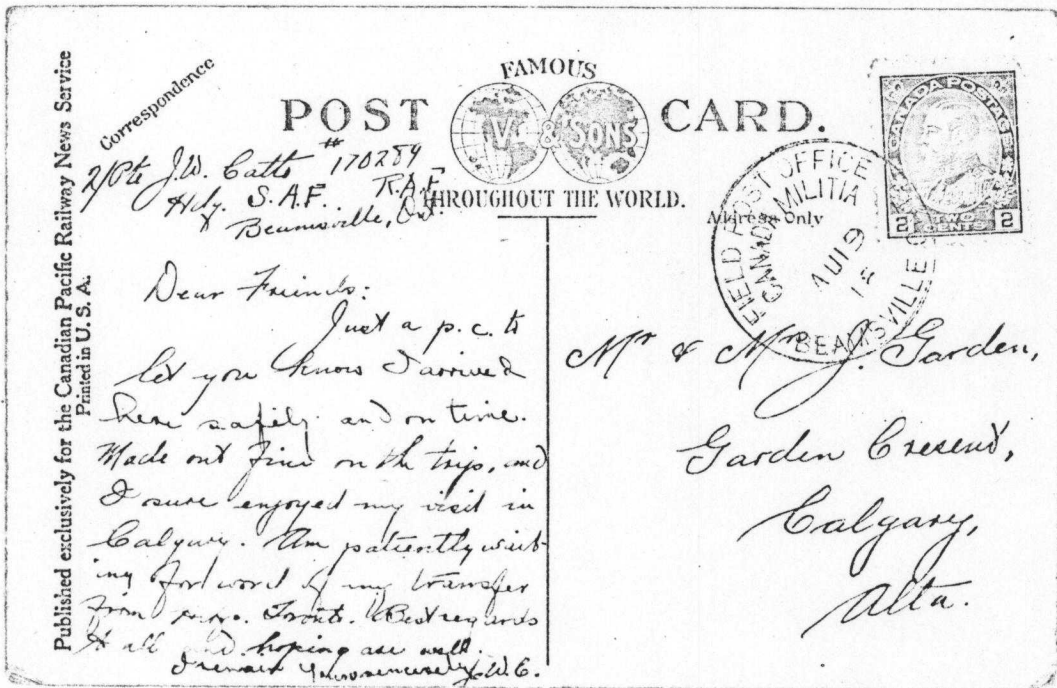 Published exclusively for the Canadian Pacific Railway News Service
Printed in U. S. A.
Correspondence
FAMOUS
POST CARD.
V. & SONS
THROUGHOUT THE WORLD.
Address Only
CANADA POSTAGE
2 TWO CENTS 2
FIELD POST OFFICE
CANADA MILITIA
AU 19
18
BEAMSVILLE
2/Pte J.W. Catts #170289
Hdq. S.A.F. R.A.F.
Beamsville, Ont.
Dear Friends:
Just a p.c. to
let you know I arrived
here safely and on time.
Made out fine on the trip, and
I sure enjoyed my visit in
Calgary. Am patiently wait-
ing for word of my transfer
from Toronto. Best regards
to all and hoping are well.
I remain Yours sincerely J.W.C.
Mr & Mrs J. Garden,
Garden Cresent,
Calgary,
Alta.